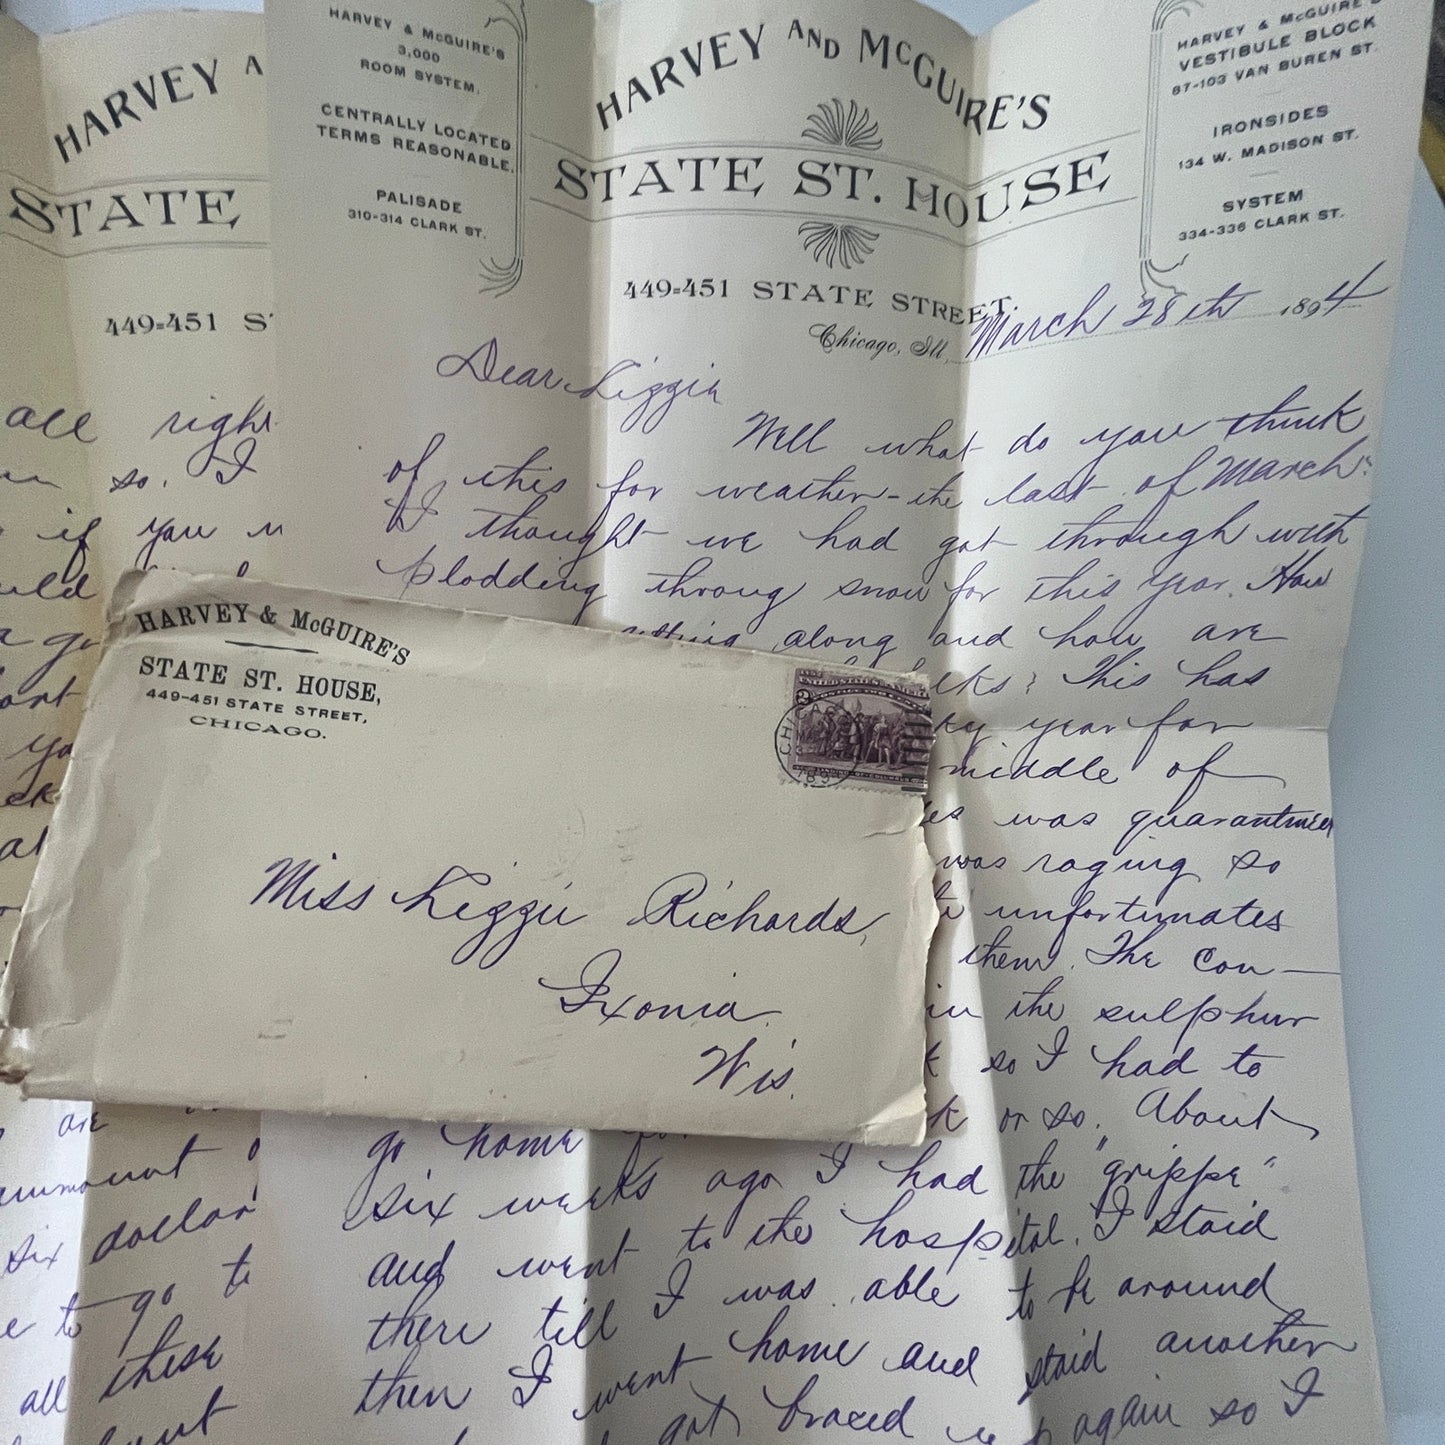 HARVEY A
STATE
449=451 S
all right
so. I
if you
uld
six dollar
go to
to go
these
all
HARVEY & McGUIRE'S
3,000
ROOM SYSTEM.
CENTRALLY LOCATED
TERMS REASONABLE.
PALISADE
310-314 CLARK ST.
HARVEY AND McGUIRE'S
STATE ST. HOUSE
449=451 STATE STREET.
HARVEY & McGUIRE'S
VESTIBULE BLOCK
87-103 VAN BUREN ST.
IRONSIDES
134 W. MADISON ST.
SYSTEM
334-336 CLARK ST.
Chicago, Ill., March 28th 1894
Dear Lizzie
Well what do you think
of this for weather - the last of March?
I thought we had got through with
plodding throug snow for this year. How
along and how are
lks? This has
year for
middle of
was quarantined
was raging so
unfortunates
them. The con-
in the sulphur
so I had to
go home or so. About
six weeks ago I had the "grippe"
and went to the hospital. I staid
there till I was able to be around
then I went home and staid another
got braced up again so I
HARVEY & McGUIRE'S
STATE ST. HOUSE,
449-451 STATE STREET,
CHICAGO.
2
CHICAGO
Miss Lizzie Richards,
Ixonia
Wis.